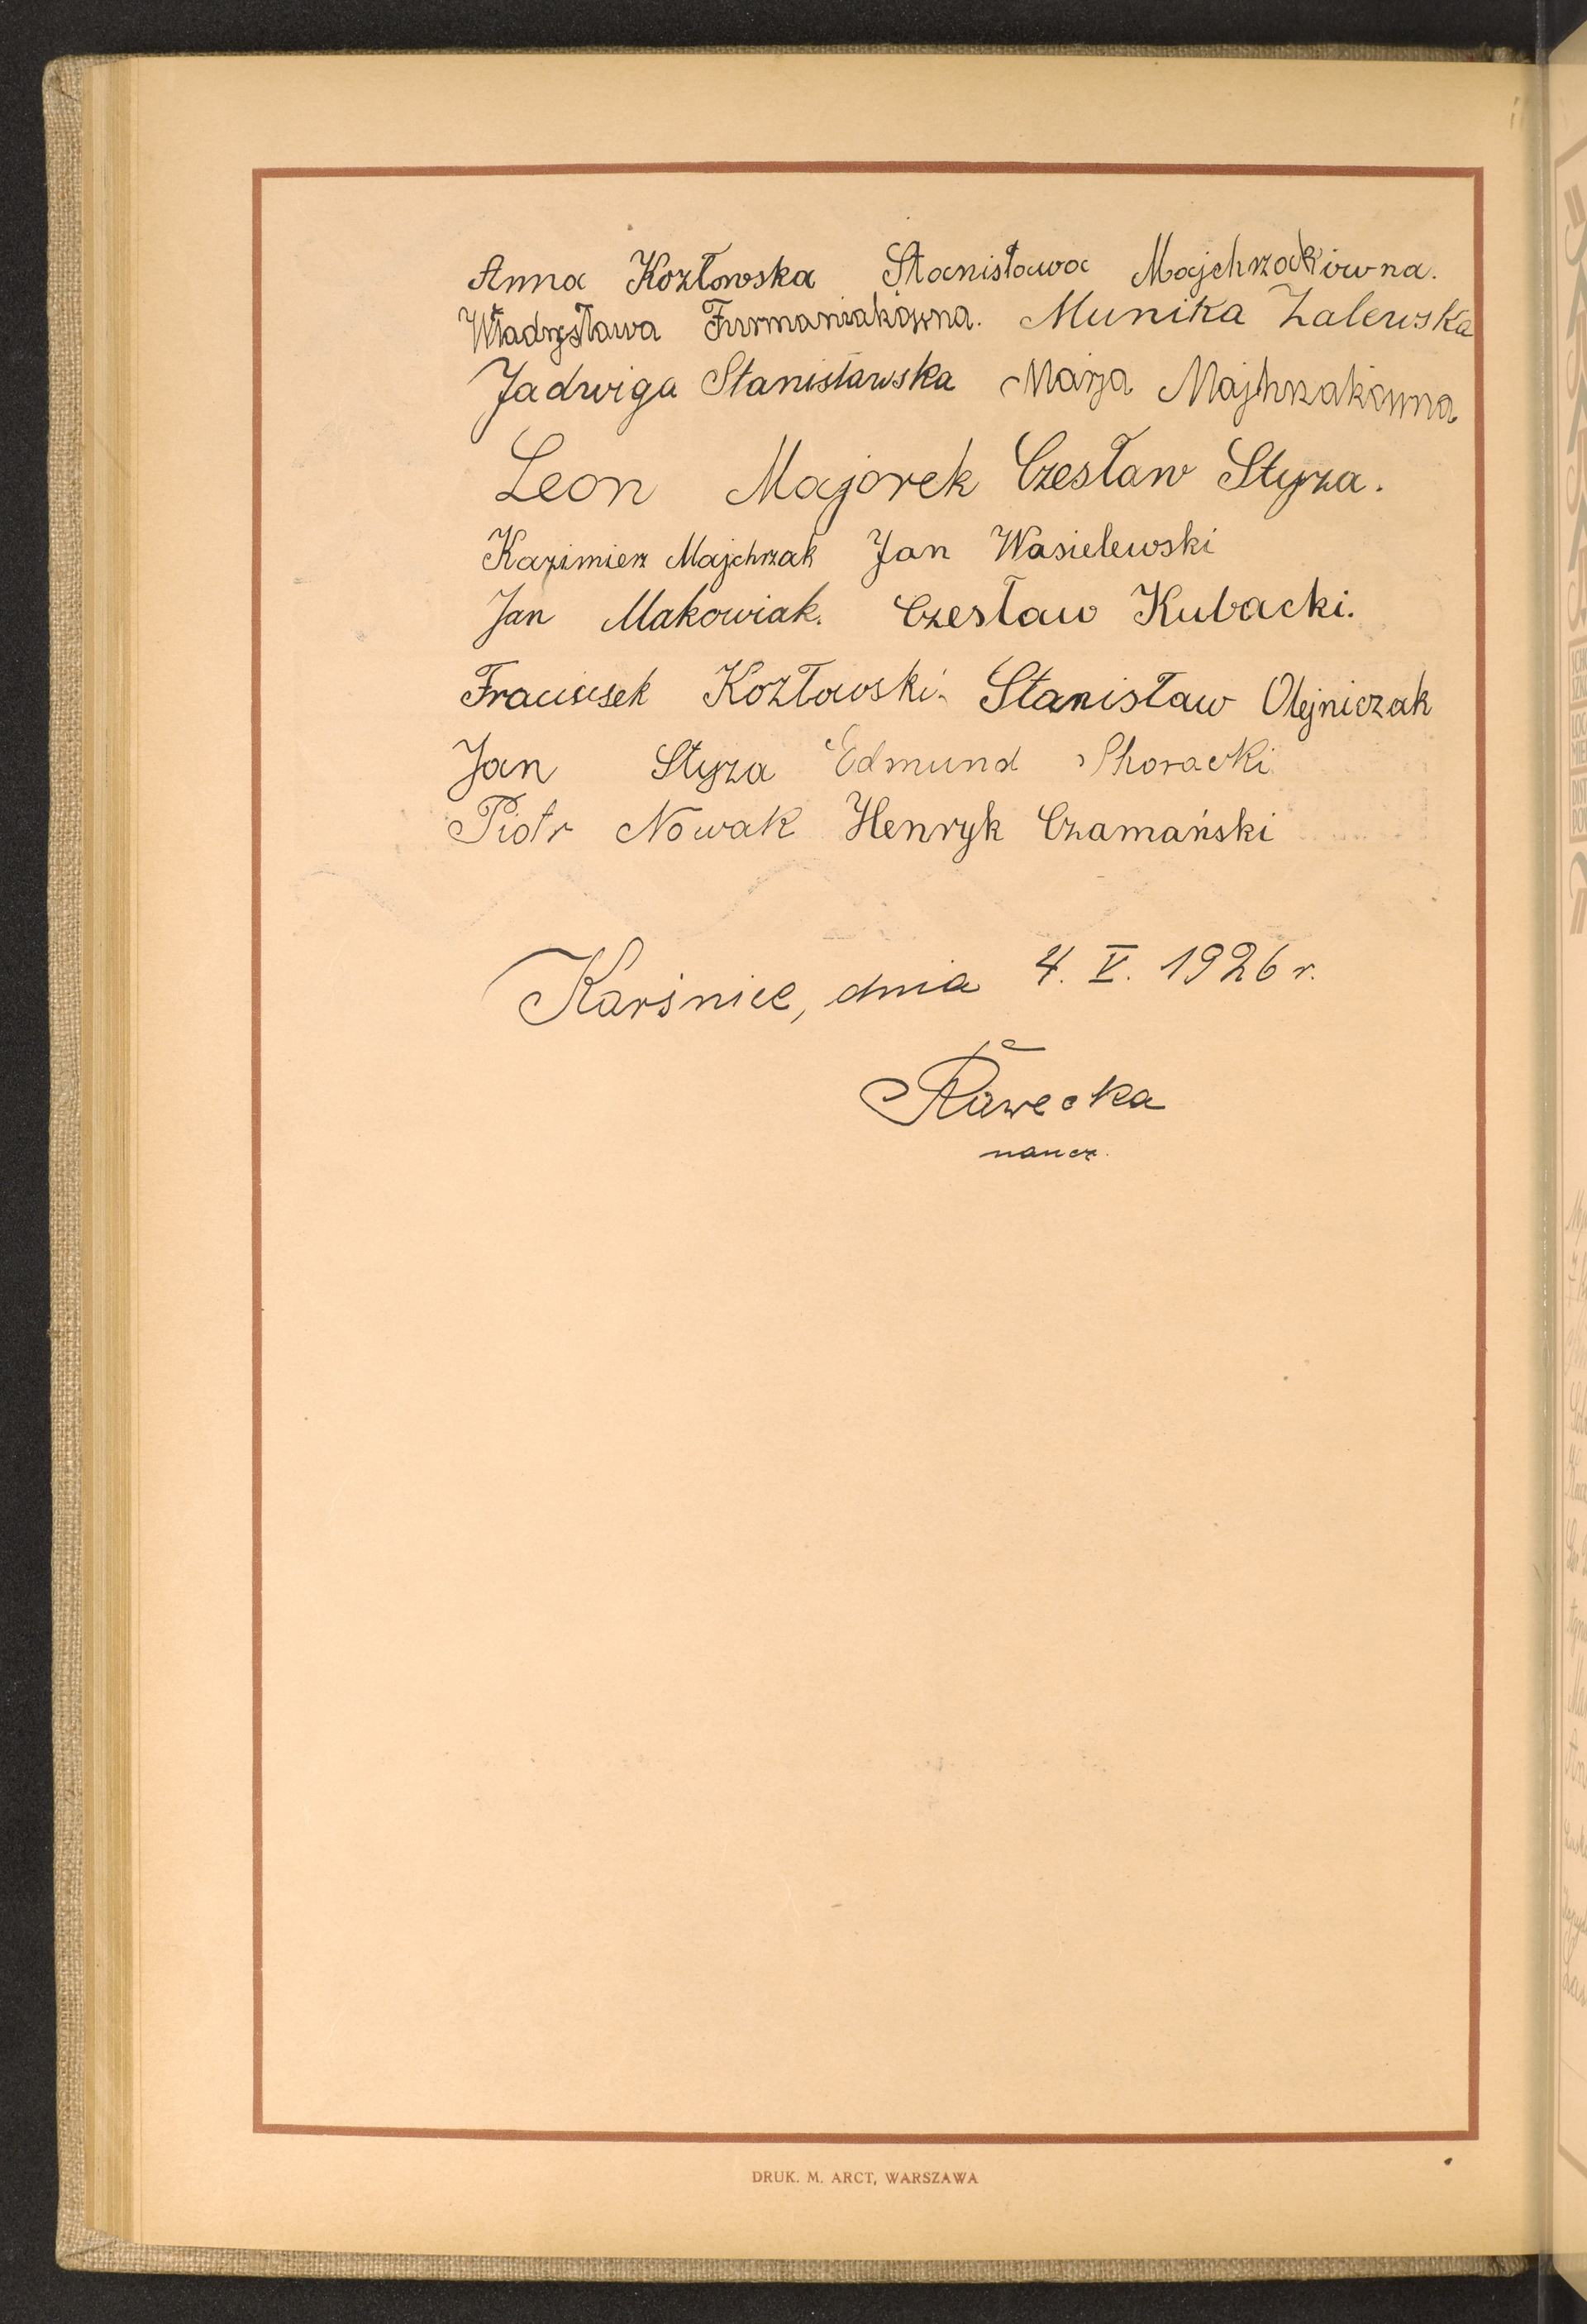 Anna Kozłowska Stanisława Majchrzakówna.
Władysława Furmaniakówna. Munika Zalewska
Jadwiga Stanisławska Marja Majhrzakówna
Leon Majorek Czesław Styza.
Kazimierz Majchrzak Jan Wasielewski
Jan Makowiak. Czesław Kubacki.
Kozłowski. Stanisław Olejniczak
Jan Styza Edmund Skoracki
Piotr Nowak Henryk Czamański
Karśnice, dnia 4. V. 1926 r.
naucz.
DRUK. M. ARCT, WARSZAWA